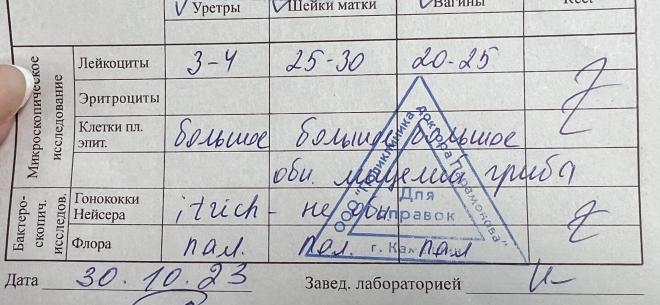 Уретры Шейки матки Вагины
Микроскопическое исследование
Лейкоциты 3-4 25-30 20-25
Эритроциты
Клетки пл. эпит. большое большое большое
обн. мицелий гриба
Бактеро-скопич. исследов.
Гонококки Нейсера , trich - не обн
Флора пал. пал. пал
ООО "Поликлиника доктора Парамонова"
Для справок
Дата 30.10.23 Завед. лабораторией